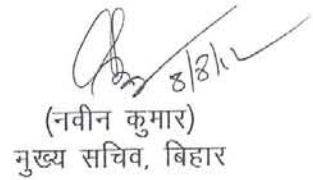 8/8/12
(नवीन कुमार)
मुख्य सचिव, बिहार